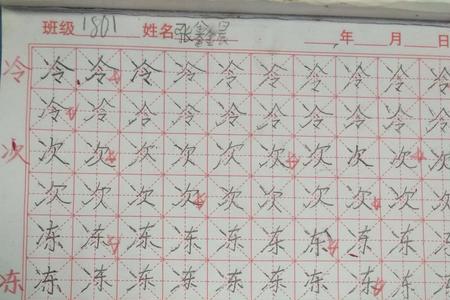 班级 1801 姓名 张 年 月 日
冷 冷 冷 冷 冷 冷 冷 冷 冷 冷 冷
冷 冷 冷 冷 冷 冷 冷 冷 冷 冷
次 次 次 次 次 次 次 次 次 次 次
次 次 次 次 次 次 次 次 次 次
冻 冻 冻 冻 冻 冻 冻 冻 冻 冻
冻 冻 冻 冻 冻 冻 冻 冻 冻 冻 冻